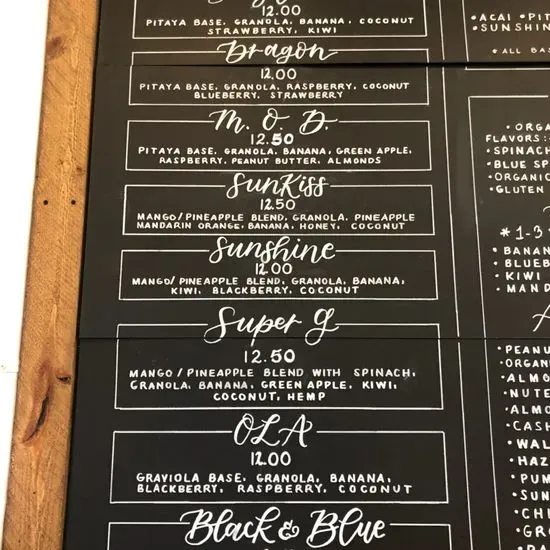 12.00
PITAYA BASE, GRANOLA, BANANA, COCONUT
STRAWBERRY, KIWI
Dragon
12.00
PITAYA BASE, GRANOLA, RASPBERRY, COCONUT
BLUEBERRY, STRAWBERRY
M.O.D.
12.50
PITAYA BASE, GRANOLA, BANANA, GREEN APPLE,
RASPBERRY, PEANUT BUTTER, ALMONDS
SunKiss
12.50
MANGO/PINEAPPLE BLEND, GRANOLA, PINEAPPLE
MANDARIN ORANGE, BANANA, HONEY, COCONUT
Sunshine
12.00
MANGO/PINEAPPLE BLEND, GRANOLA, BANANA,
KIWI, BLACKBERRY, COCONUT
Super G
12.50
MANGO/PINEAPPLE BLEND WITH SPINACH,
GRANOLA, BANANA, GREEN APPLE, KIWI,
COCONUT, HEMP
OLA
12.00
GRAVIOLA BASE, GRANOLA, BANANA,
BLACKBERRY, RASPBERRY, COCONUT
Black & Blue
•ACAI •PIT
•SUNSHIN
*ALL BAS
•ORGA
FLAVORS:
•SPINACH
•BLUE SP
•ORGANIC
•GLUTEN
*1-3
•BANAN
•BLUEB
•KIWI
•MAND
•PEANU
•ORGAN
•ALMO
•NUTE
•ALMO
•CASH
•WAL
•HAZ
•PUM
•SUN
•CHI
•GR